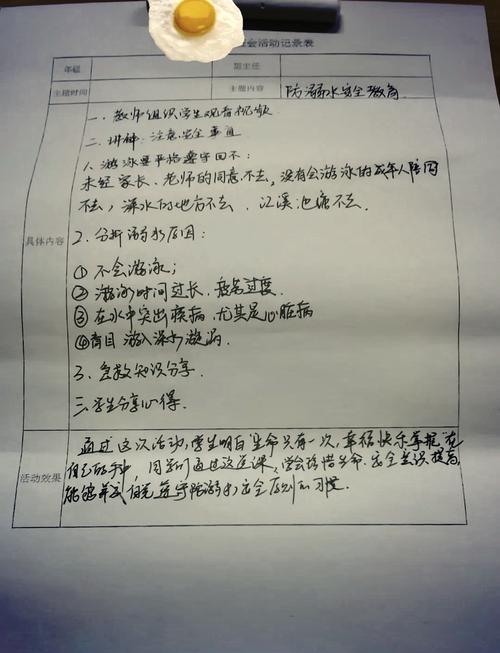 会活动记录表
年级 班主任
主题时间 主题内容 防溺水安全教育
一、教师组织学生观看视频
二、讲解:注意安全事宜
1、游泳要严格遵守四不:
未经家长、老师的同意不去,没有会游泳的成年人陪同
不去,深水的地方不去、江溪池塘不去.
具体内容
2、分析溺水原因:
① 不会游泳;
② 游泳时间过长,疲劳过度.
③ 在水中突出疾病,尤其是心脏病
④盲目游入深水漩涡.
3、急救知识分享.
三、学生分享心得.
活动效果
通过这次活动,学生明白生命只有一次,幸福快乐掌握在
自己的手中,同学们通过这这课,学会珍惜生命.安全意识提高,
能够养成自觉遵守防溺水安全原则的习惯.